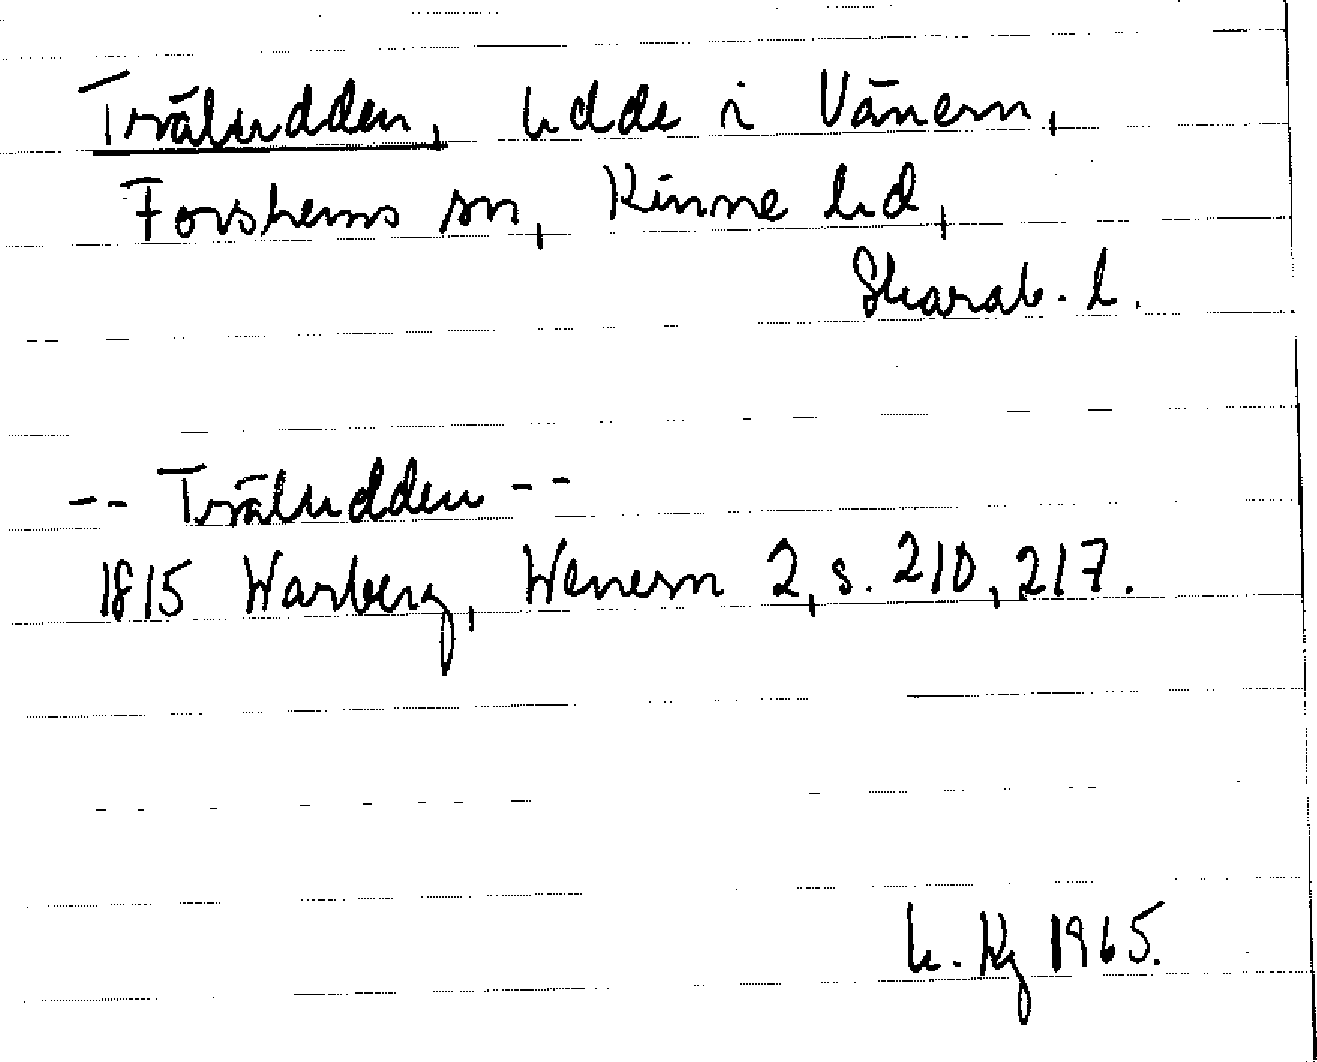 Träludden, Udde i Vänern,
Forshems sn, Kinne hd,
Skarab. l.
-- Träludden --
1815 Warberg, Wenern 2, s. 210, 217.
Kg 1965.